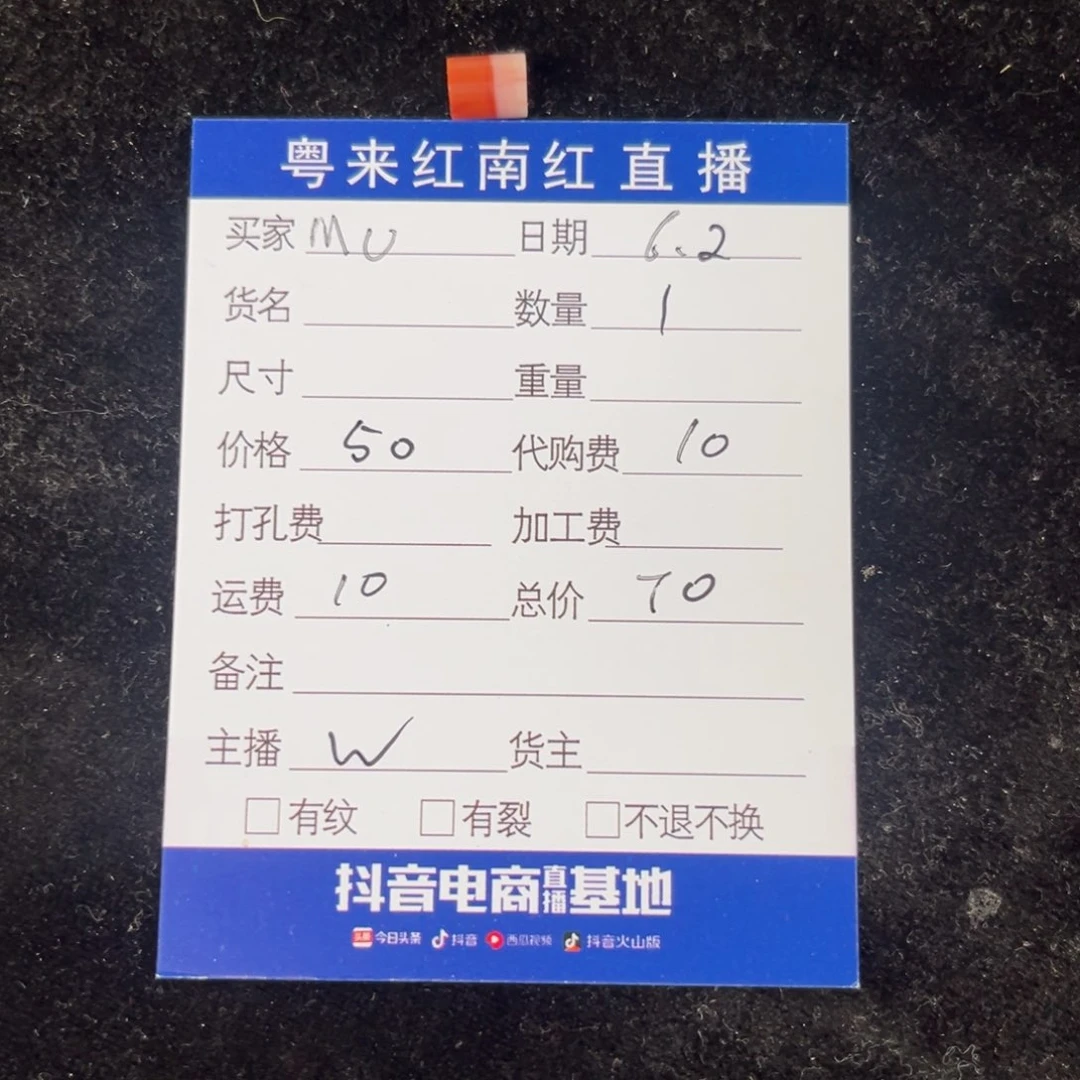 粤来红南红直播
买家 MU 日期 6.2
货名 数量 1
尺寸 重量
价格 50 代购费 10
打孔费 加工费
运费 10 总价 70
备注
主播 W 货主
□有纹 □有裂 □不退不换
抖音电商直播基地
头条 今日头条 抖音 西瓜视频 抖音火山版